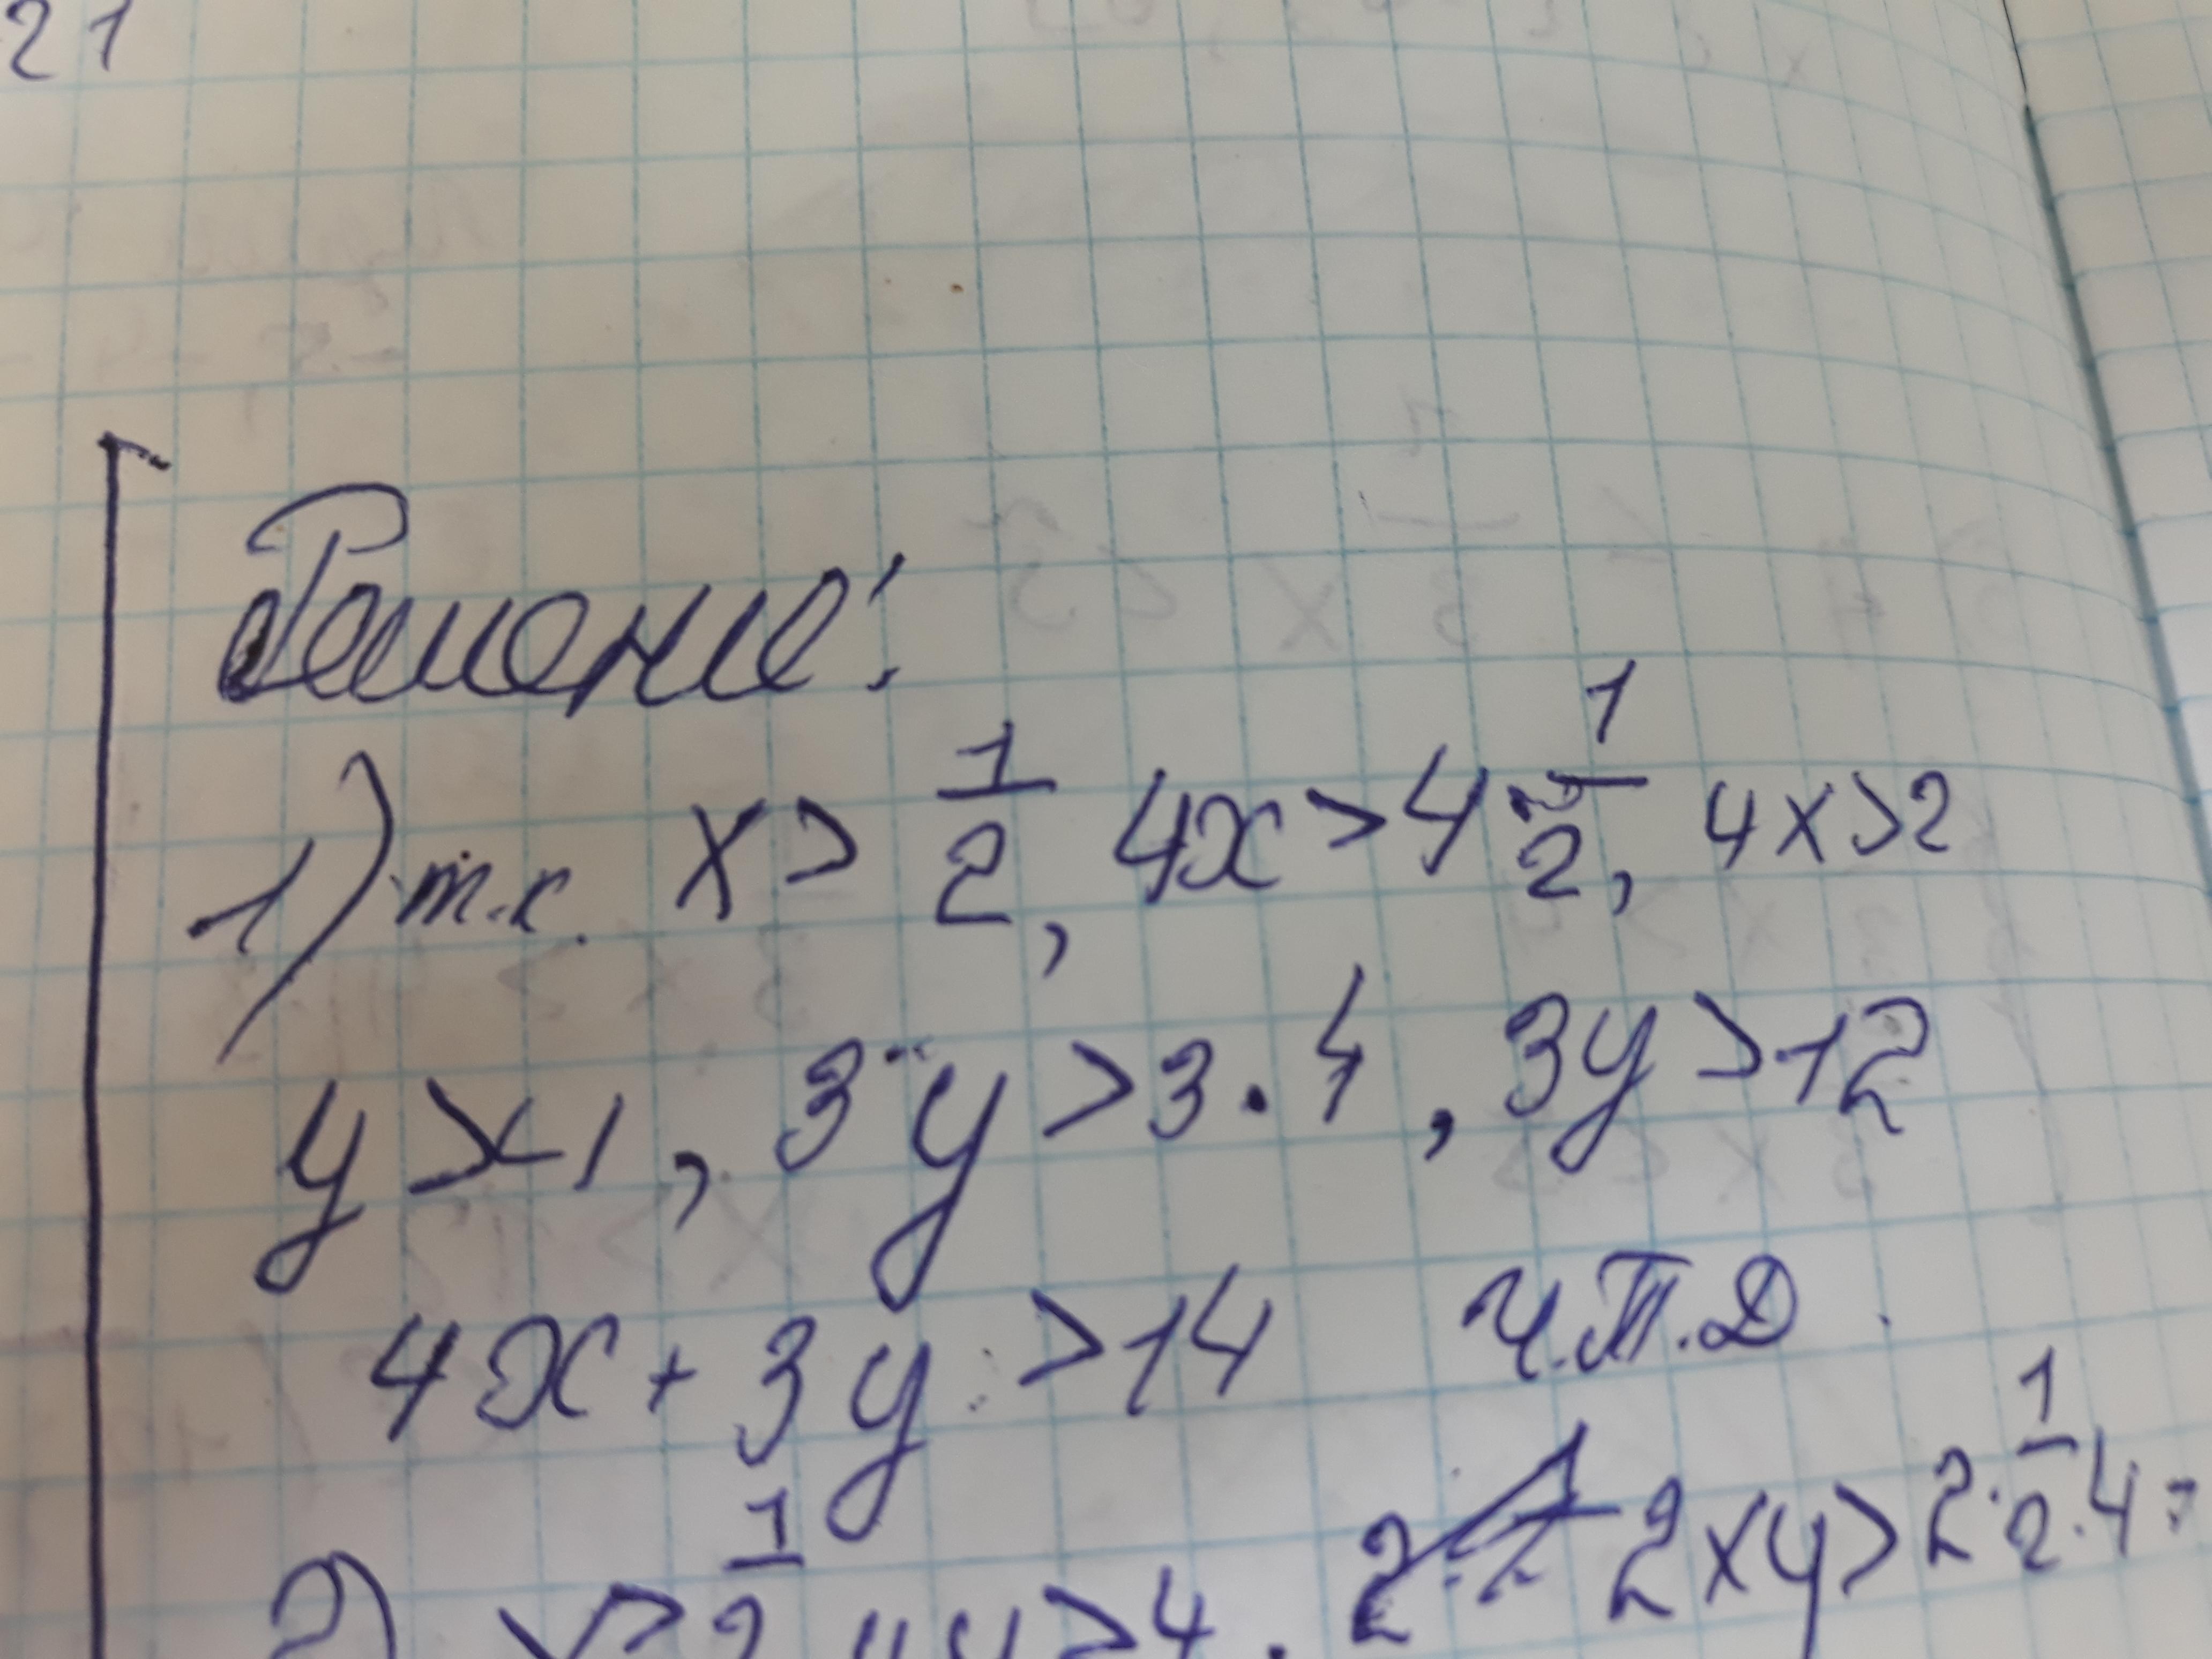 21
Решение:
1) т.к. x > 1/2, 4x > 4 · 1/2, 4x > 2
y > 4, 3 · y > 3 · 4, 3y > 12
4x + 3y > 14 Ч.Т.Д.
2) x > 1/2 и y > 4. 2xy > 2 · 1/2 · 4 =